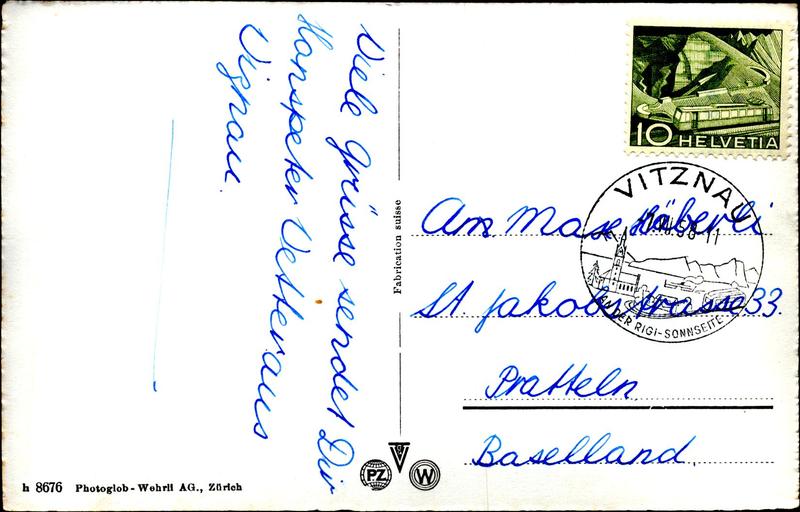 Viele Grüsse sendet Dir
Hanspeter Vetter aus
Vignau.
Fabrication suisse
10 HELVETIA
VITZNAU
AN DER RIGI-SONNSEITE
Am Max Häberli
St. Jakobstrasse 33.
Pratteln
Baselland.
PZ
W
h 8676 Photoglob-Wehrli AG., Zürich